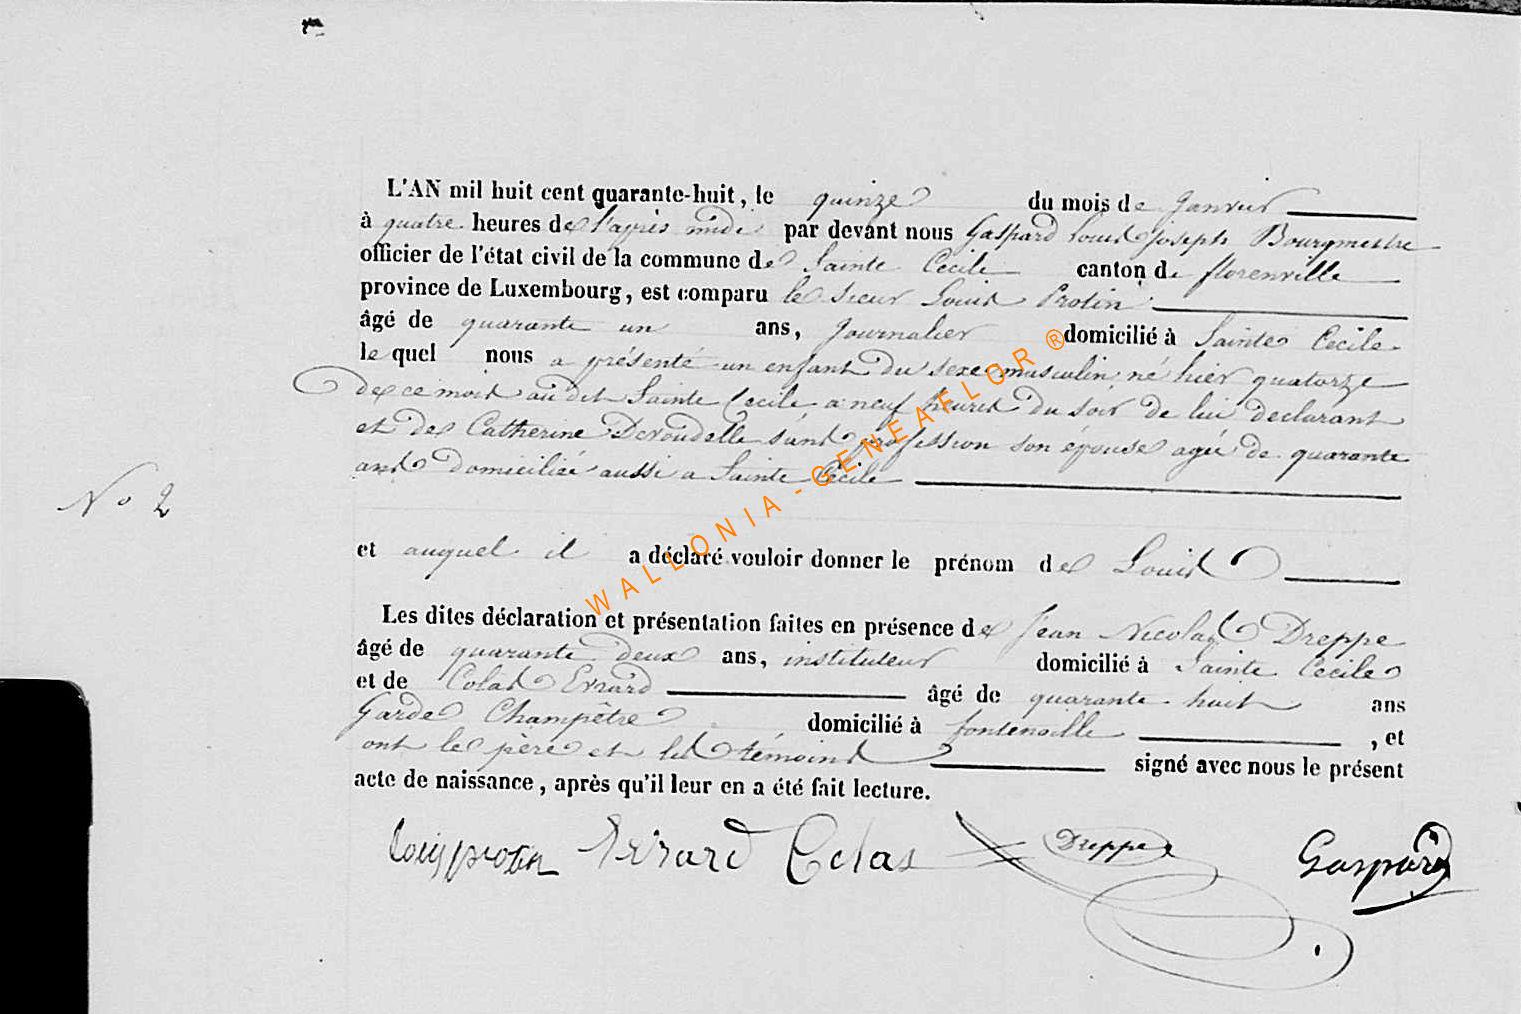 L'AN mil huit cent quarante-huit, le quinze du mois de Janvier
à quatre heures de l'après midi par devant nous Gaspard Louis Joseph Bourgmestre
officier de l'état civil de la commune de Sainte Cecile canton de florenville
province de Luxembourg, est comparu le sieur Louis Protin
âgé de quarante un ans, Journalier domicilié à Sainte Cecile
le quel nous a présenté un enfant du sexe masculin né hier quatorze
de ce mois au dit Sainte Cecile a neuf heures du soir de lui declarant
et de Catherine Devoudelle sans profession son épouse agée de quarante
ans domiciliée aussi a Sainte Cecile
No 2
et auquel il a déclaré vouloir donner le prénom de Louis
Les dites déclaration et présentation faites en présence de Jean Nicolas Dreppe
âgé de quarante deux ans, instituteur domicilié à Sainte Cecile
et de Colas Errard âgé de quarante huit ans
Garde Champêtre domicilié à fontenoille , et
ont le père et les témoins signé avec nous le présent
acte de naissance, après qu'il leur en a été fait lecture.
Louis protin Errard Colas Dreppe Gaspard
WALLONIA - GENEAFLOR ®